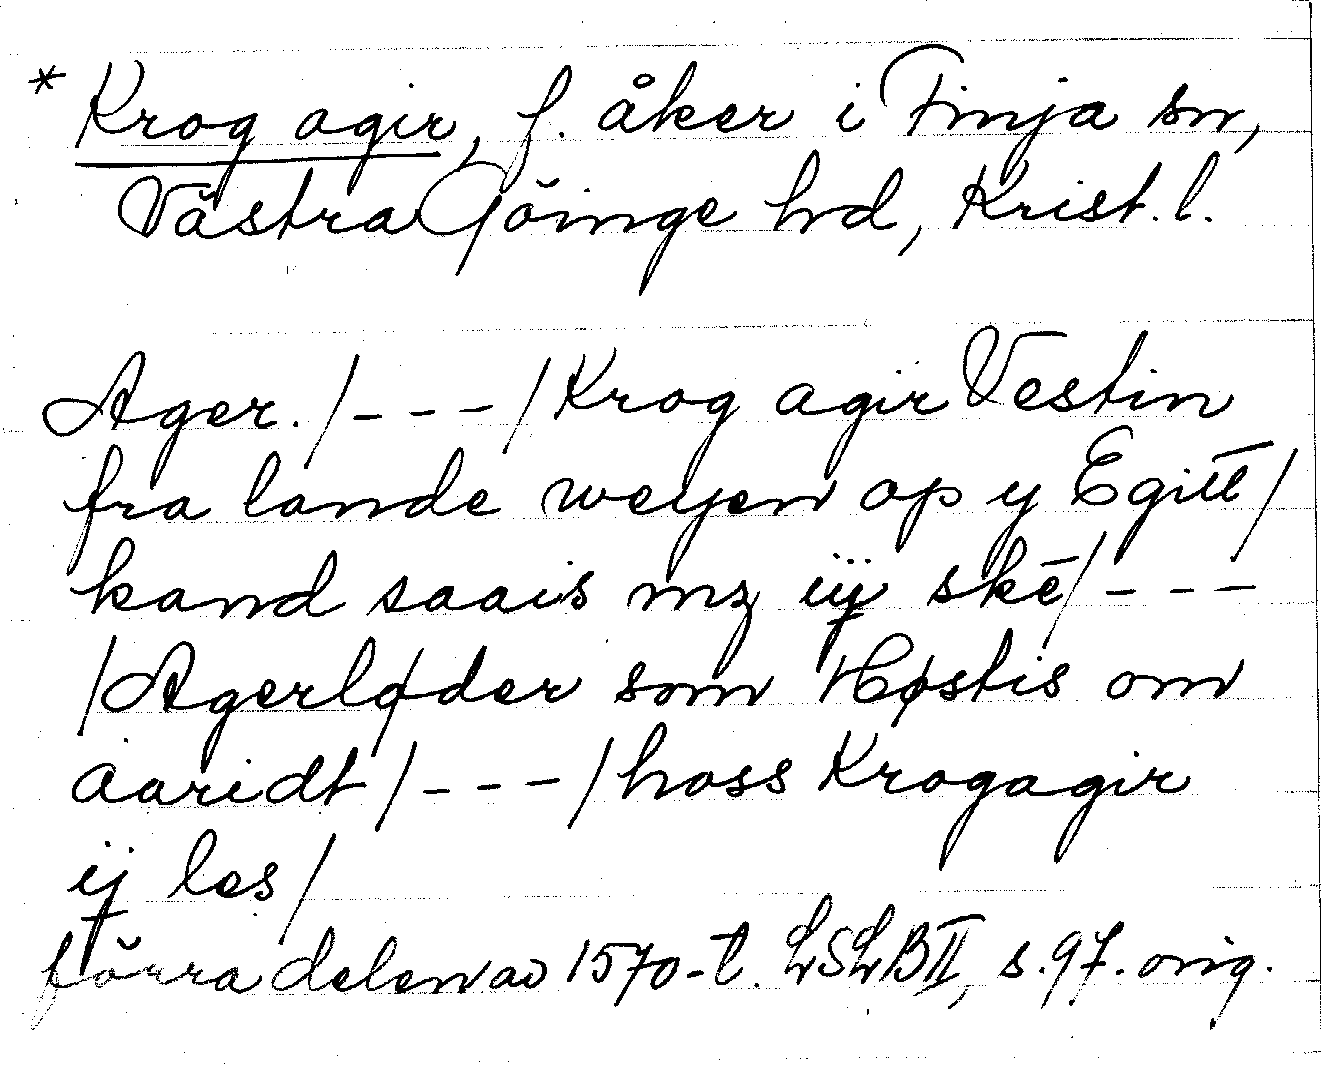 * Krog agir, f. åker i Finja sn,
Västra Göinge hd, Krist. l.
Ager. /---/ Krog agir Vestin
fra lande weyen op y Egitt /
kand saais mz iij skē /---
/ Agerløder som Høstis om
aaridt /---/ hoss Krogagir
ij les /
förra delen av 1570-t. LSLB II, s. 97. orig.